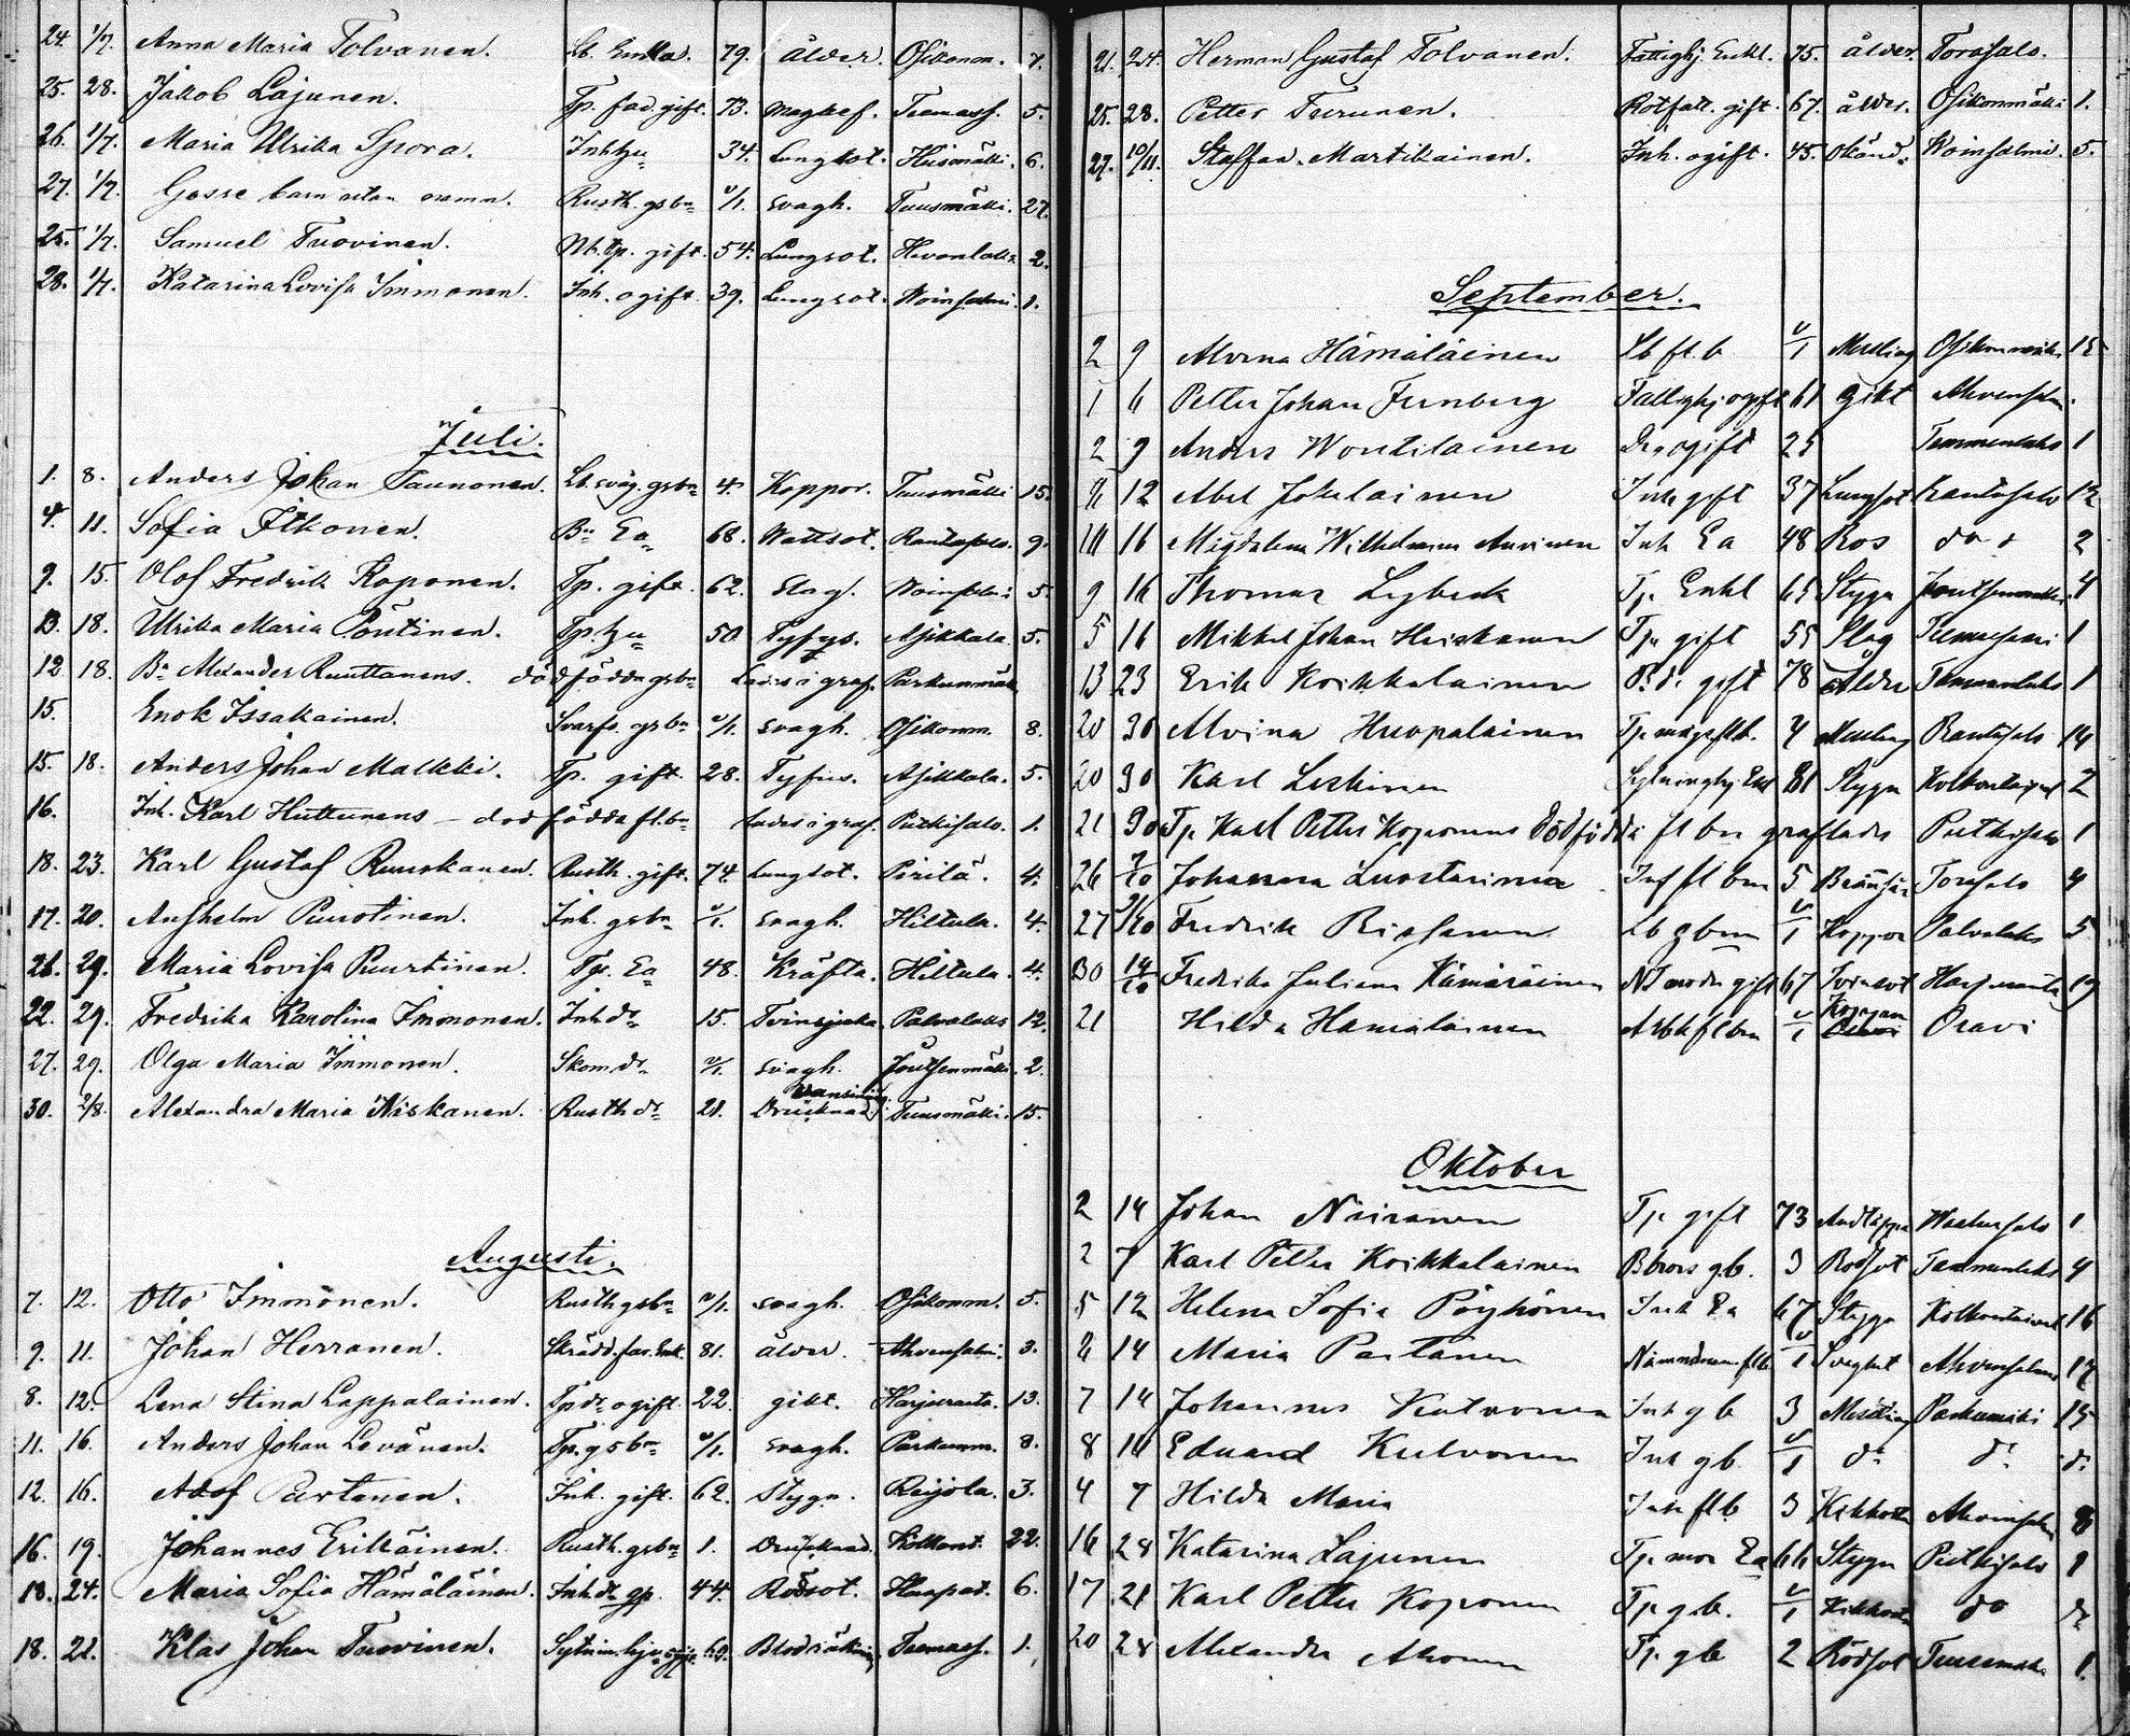 24. 1/7. Anna Maria Tolvanen. Lb. Enka. 79. ålder. Osikonm. 7.
25. 28. Jakob Lajunen. Tp. fad. gift. 73. Magkef. Teemass. 5.
26. 1/7. Maria Ulrika Spora. Inh. hu 34. Lungsot. Heismäki. 6.
27. 1/7. Gosse barn utan namn. Rusth. gsbn u/1. svagh. Tuusmäki. 27.
25. 1/7. Samuel Tuovinen. Nb. tp. gift. 54. Lungsot. Hevonlaks 2.
28. 1/7. Katarina Lovisa Immonen. Inh. ogift. 39. Lungsot. Woinsalmi. 1.
Juli.
1. 8. Anders Johan Taunonen. Lb. svåg. gsbn 4. Koppor. Tuusmäki 15.
4. 11. Sofia Itkonen. Bn Ea 68. Wattsot. Rantasalo. 9.
9. 15. Olof Fredrik Koponen. Tp. gift. 62. Slag. Woinsalmi 5.
13. 18. Ulrika Maria Pöntinen. Tp. hu 50 Tyfus. Asikkala 5.
12 18. Bn Alexander Ruuttanens. dödfödda gsbn Lades i graf. Parkunmäki
15. Enok Issakainen. Svarfs. gsbn u/1. svagh. Osikonm. 8.
15. 18. Anders Johan Malkki. Tp. gift. 28. Tyfus. Asikkala. 5.
16. Inh. Karl Huttunens - dödfödda fl. bn Lades i graf. Putkisalo. 1.
18. 23. Karl Gustaf Ruuskanen. Rusth. gift. 74. Lungsot. Pirilä. 4.
17. 20. Anshelm Puurtinen. Inh. gsbn u/1. svagh. Hiltula. 4.
21. 29. Maria Lovisa Puurtinen. Tp. Ea 48. Kräfta. Hiltula. 4.
22. 29. Fredrika Karolina Immonen. Inh. dr 15. Tvinsjuka Palvalaks 12.
27. 29. Olga Maria Immonen. Skom. dr u/1. svagh. Joutsenmäki. 2.
30. 2/8. Alexandra Maria Niskanen. Rusth dr 21. Drucknad Tuusmäki. 15.
Augusti.
7. 12. Otto Immonen. Rusth gsbn u/1. svagh. Osikonm. 5.
9. 11. Johan Herranen. Skrädd. far. Enk. 81. ålder. Ahvensalmi. 3.
8. 12. Lena Stina Lappalainen. Tp dr ogift. 22. gikt. Harjuranta. 13.
11. 16. Anders Johan Levänen. Tp. gsbn u/1. svagh. Parkunm. 8.
12. 16. Adof Partanen. Inh. gift. 62. Stygn. Reijola. 3.
16. 19. Johannes Erikäinen. Rusth. gsbn 1. Drucknad. Kolkont. 22.
18. 24. Maria Sofia Hämäläinen. Inh. dr gp. 44. Rödsot. Haapat. 6.
18. 21. Klas Johan Tuovinen. Sytnin. hj. ogift. Teemass. 1.
21. 24. Herman Gustaf Tolvanen. Fattighj. Enkl. 75. ålder. Torasalo.
25. 28. Petter Turunen. Rotfatt. gift. 67. ålder. Osikonmäki 1.
27. 10/11. Staffan Martikainen. Inh. ogift. 45. Okänd. Woinsalmi. 5.
September.
2 9 Alvina Hämäläinen Lb fl. b. u/1 Messling Osikonmäki 15
1 6 Petter Johan Fernberg Fattighj ogift 61 Gikt Ahvensalm.
2 9 Anders Wontilainen Drg ogift 25 Tammenlaks 1
12 Abel Jokelainen Inh gift 37 Lungsot Rantasalo 12
16 Magdalena Wilhelmina Auvinen Inh Ea 48 Ros do 2
9 16 Thomas Lybeck Tp. Enkl 65 Stygn Joutsenmäki 4
5 16 Mikkel Johan Heiskanen Tp. gift 55 Slag Teemassaari 1
13 23 Erik Koikkalainen gift 78 Ålder Tammenlaks 1
20 30 Alvina Huopalainen Tp. mågs fl b. 4 Messling Rantasalo 14
20 30 Karl Leskinen Sytningshj. Enkl 81 Stygn Kolkontaipal 2
21 30 Tp Karl Petter Koponens Dödfödda fl bn graflades Putkisalo 1
26 7/10 Johanna Luostarinen Inh fl bn 5 Torasalo 4
27 7/10 Fredrik Rissanen Lb g bn u/1 Koppor Palvalaks 5
30 14/10 Fredrika Juliana Kämäräinen gift 67 Tvinsot Harjuranta 19
21 Hilda Hämäläinen fl bn u/1 Koppor Oravi
Oktober
2 14 Johan Näiränen Tp gift 73 Andtäppa Waahersalo 1
2 7 Karl Petter Koikkalainen B brors gb. 3 Rödsot Tammenlaks 4
5 12 Helena Sofia Pöyhönen Inh Ea 67 Stygn Kolkontaipal 16
6 14 Maria Partanen Nämndmans flb u/1 Svaghet Ahvensalmi 17
7 14 Johannes Kutvonen Inh g b 3 Messling Parkumäki 15
8 14 Eduard Kutvonen Inh gb. u/1 do do do
4 7 Hilda Maria Inh flb 3 Kikhosta Ahvensalm 8
16 28 Katarina Lajunen Tp mor Ea 66 Stygn Putkisalo 1
17 21 Karl Petter Koponen Tp g b. u/1 Kikhosta do do
20 28 Alexander Ahonen Tp. gb 2 Rödsot Tuusmäki 1.